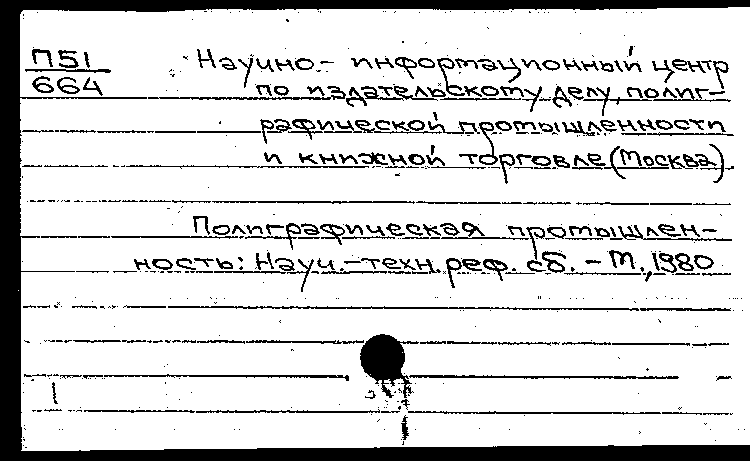 П51
664
Научно-информационный центр
по издательскому делу, полиг-
рафической промышленности
и книжной торговле (Москва)
Полиграфическая промышлен-
ность: Науч.-техн. реф. сб. - М., 1980